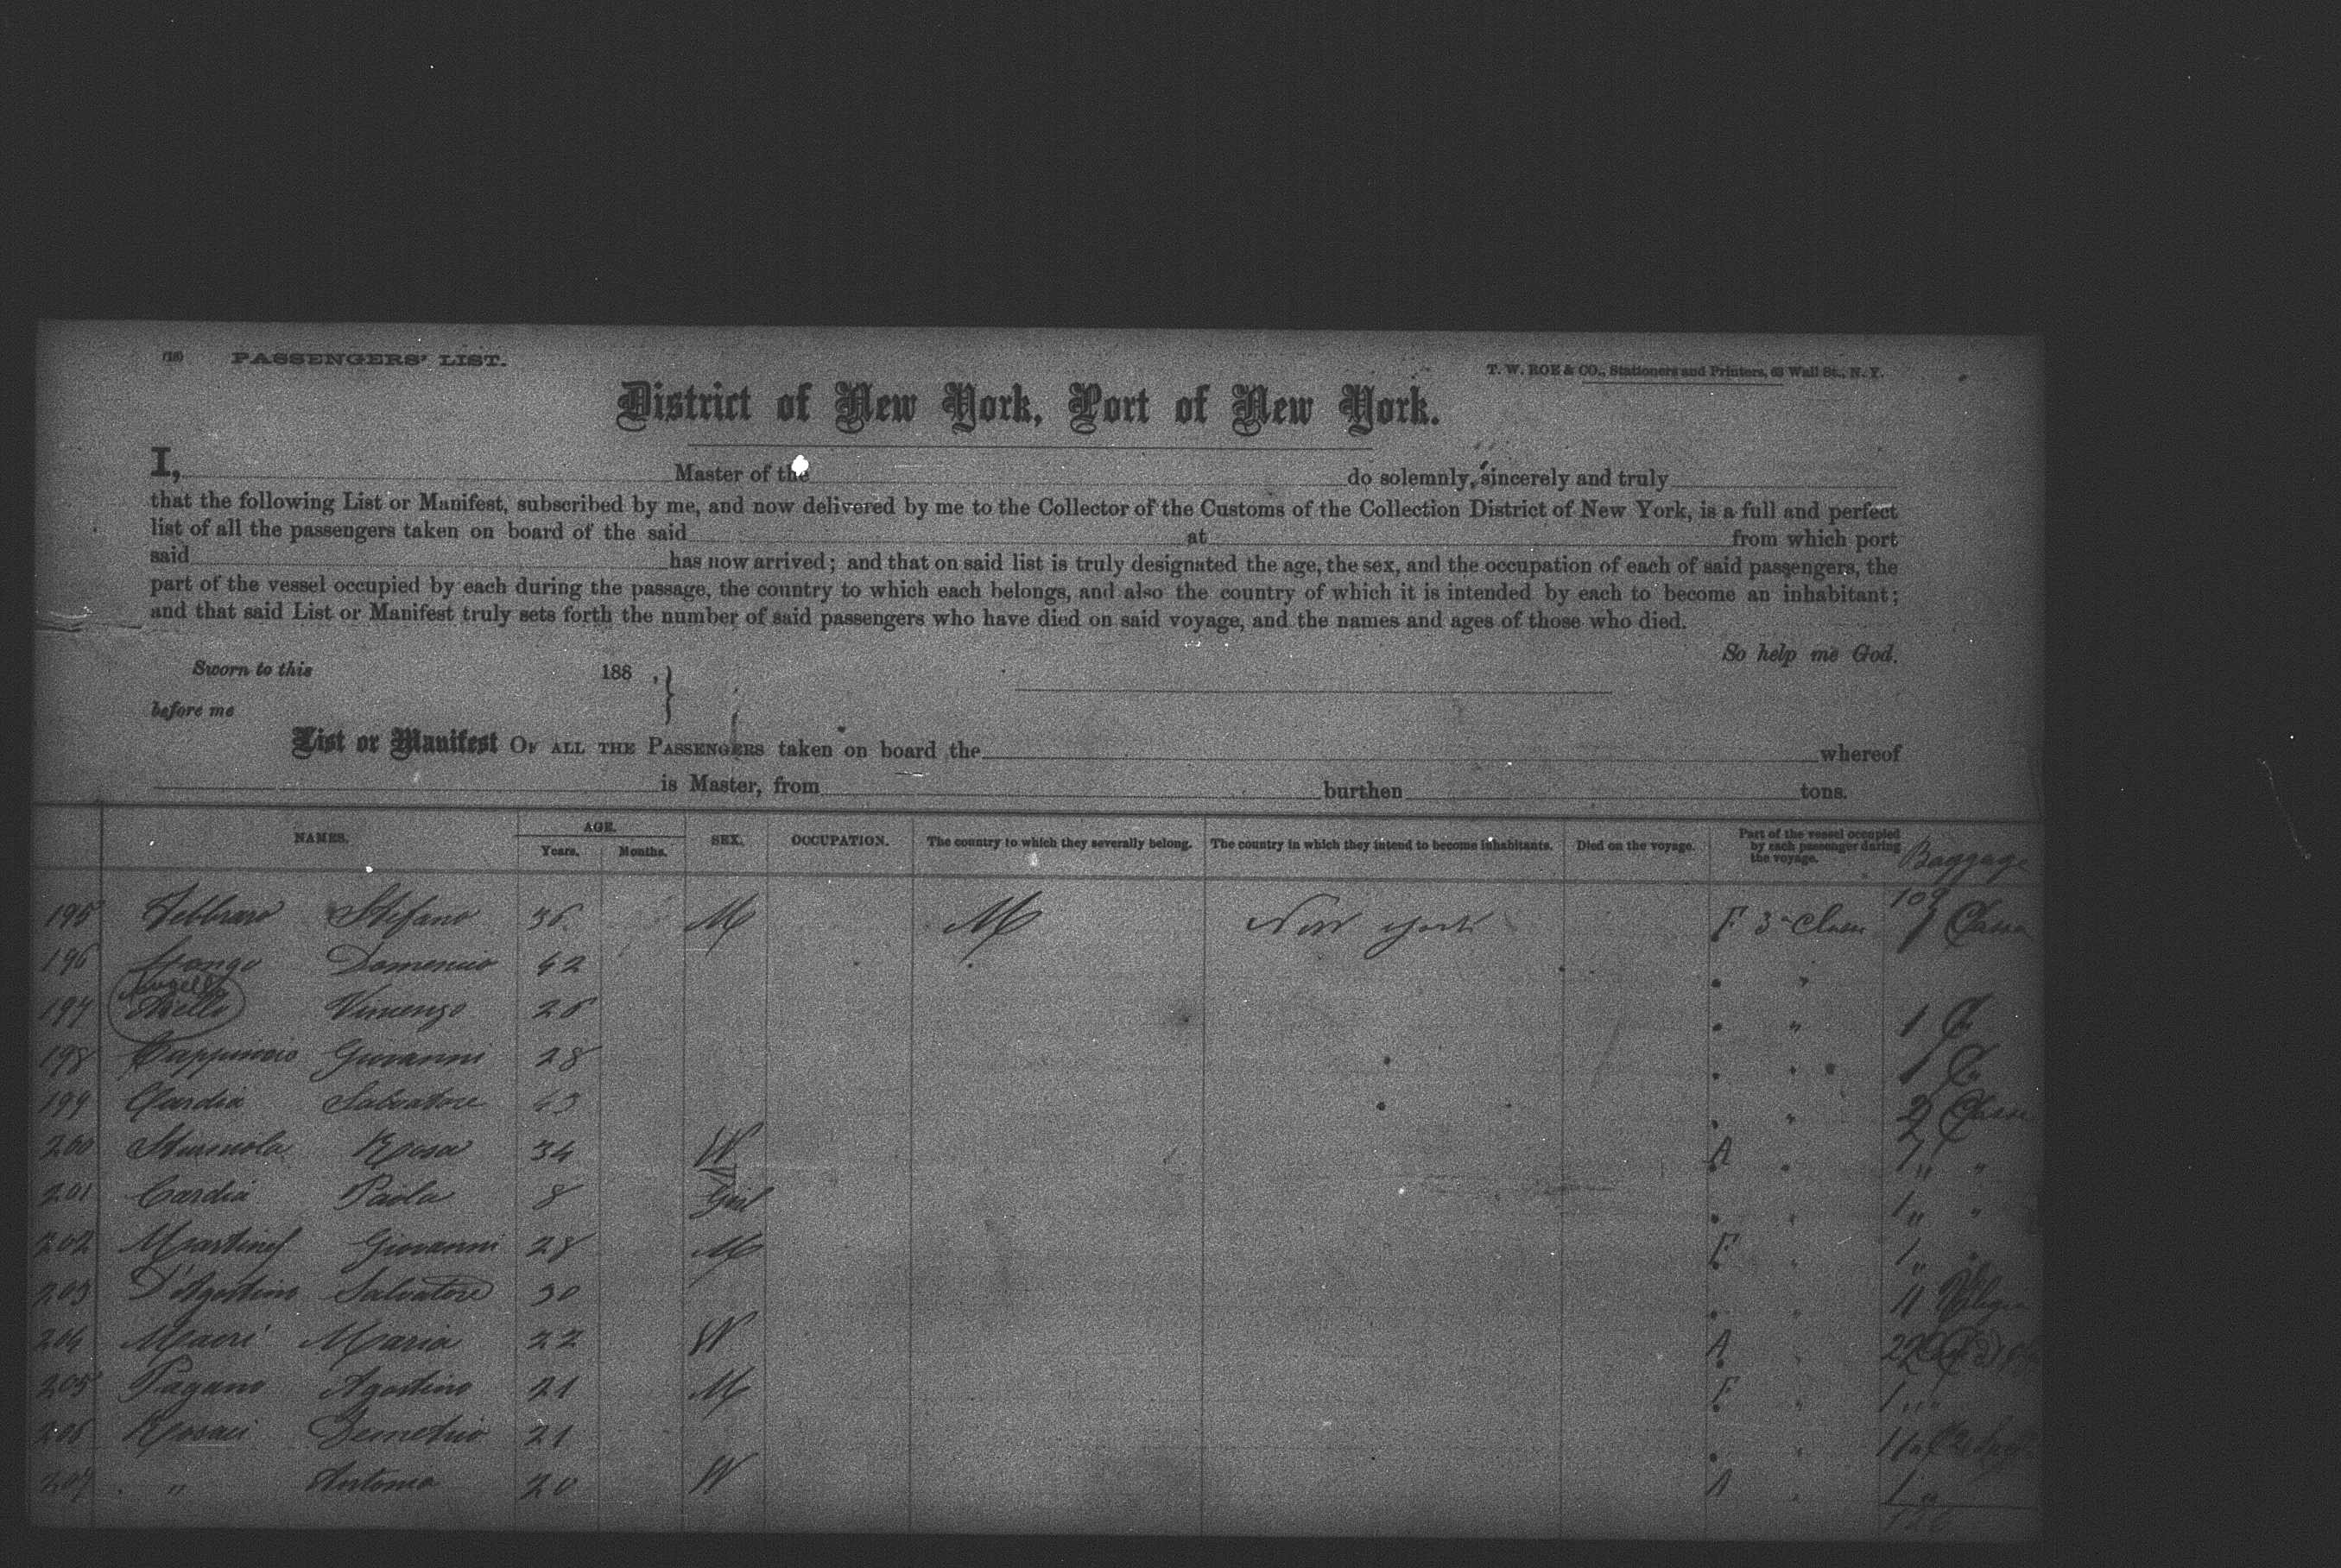 (18) PASSENGERS' LIST.
T. W. ROE & CO., Stationers and Printers, 63 Wall St., N. Y.
District of New York, Port of New York.
I, Master of the do solemnly, sincerely and truly
that the following List or Manifest, subscribed by me, and now delivered by me to the Collector of the Customs of the Collection District of New York, is a full and perfect
list of all the passengers taken on board of the said at from which port
said has now arrived; and that on said list is truly designated the age, the sex, and the occupation of each of said passengers, the
part of the vessel occupied by each during the passage, the country to which each belongs, and also the country of which it is intended by each to become an inhabitant;
and that said List or Manifest truly sets forth the number of said passengers who have died on said voyage, and the names and ages of those who died.
So help me God.
Sworn to this 188 ,
before me
List or Manifest OF ALL THE PASSENGERS taken on board the whereof
is Master, from burthen tons.
NAMES. AGE. Years. Months. SEX. OCCUPATION. The country to which they severally belong. The country in which they intend to become inhabitants. Died on the voyage. Part of the vessel occupied by each passenger during the voyage. Baggage
109
195 Febbraro Stefano 36 M M New York F 3a Class 1
196 Longo Domenico 42 "
197 Vincenzo 26 " 1
198 Cappuccio Giovanni 28 " 1
199 Cardia Salvatore 43 " 2
200 Rosa 34 W A " 1 " "
201 Cardia Paola 8 Girl " 1 " "
202 Martino Giovanni 28 M F " 1 "
203 D'Agostino Salvatore 30 " 11
204 Macri Maria 22 W A "
205 Pagano Agostino 21 M F " 1
206 Rosaci Demetrio 21 "
207 " Antonia 20 W A " 1 "